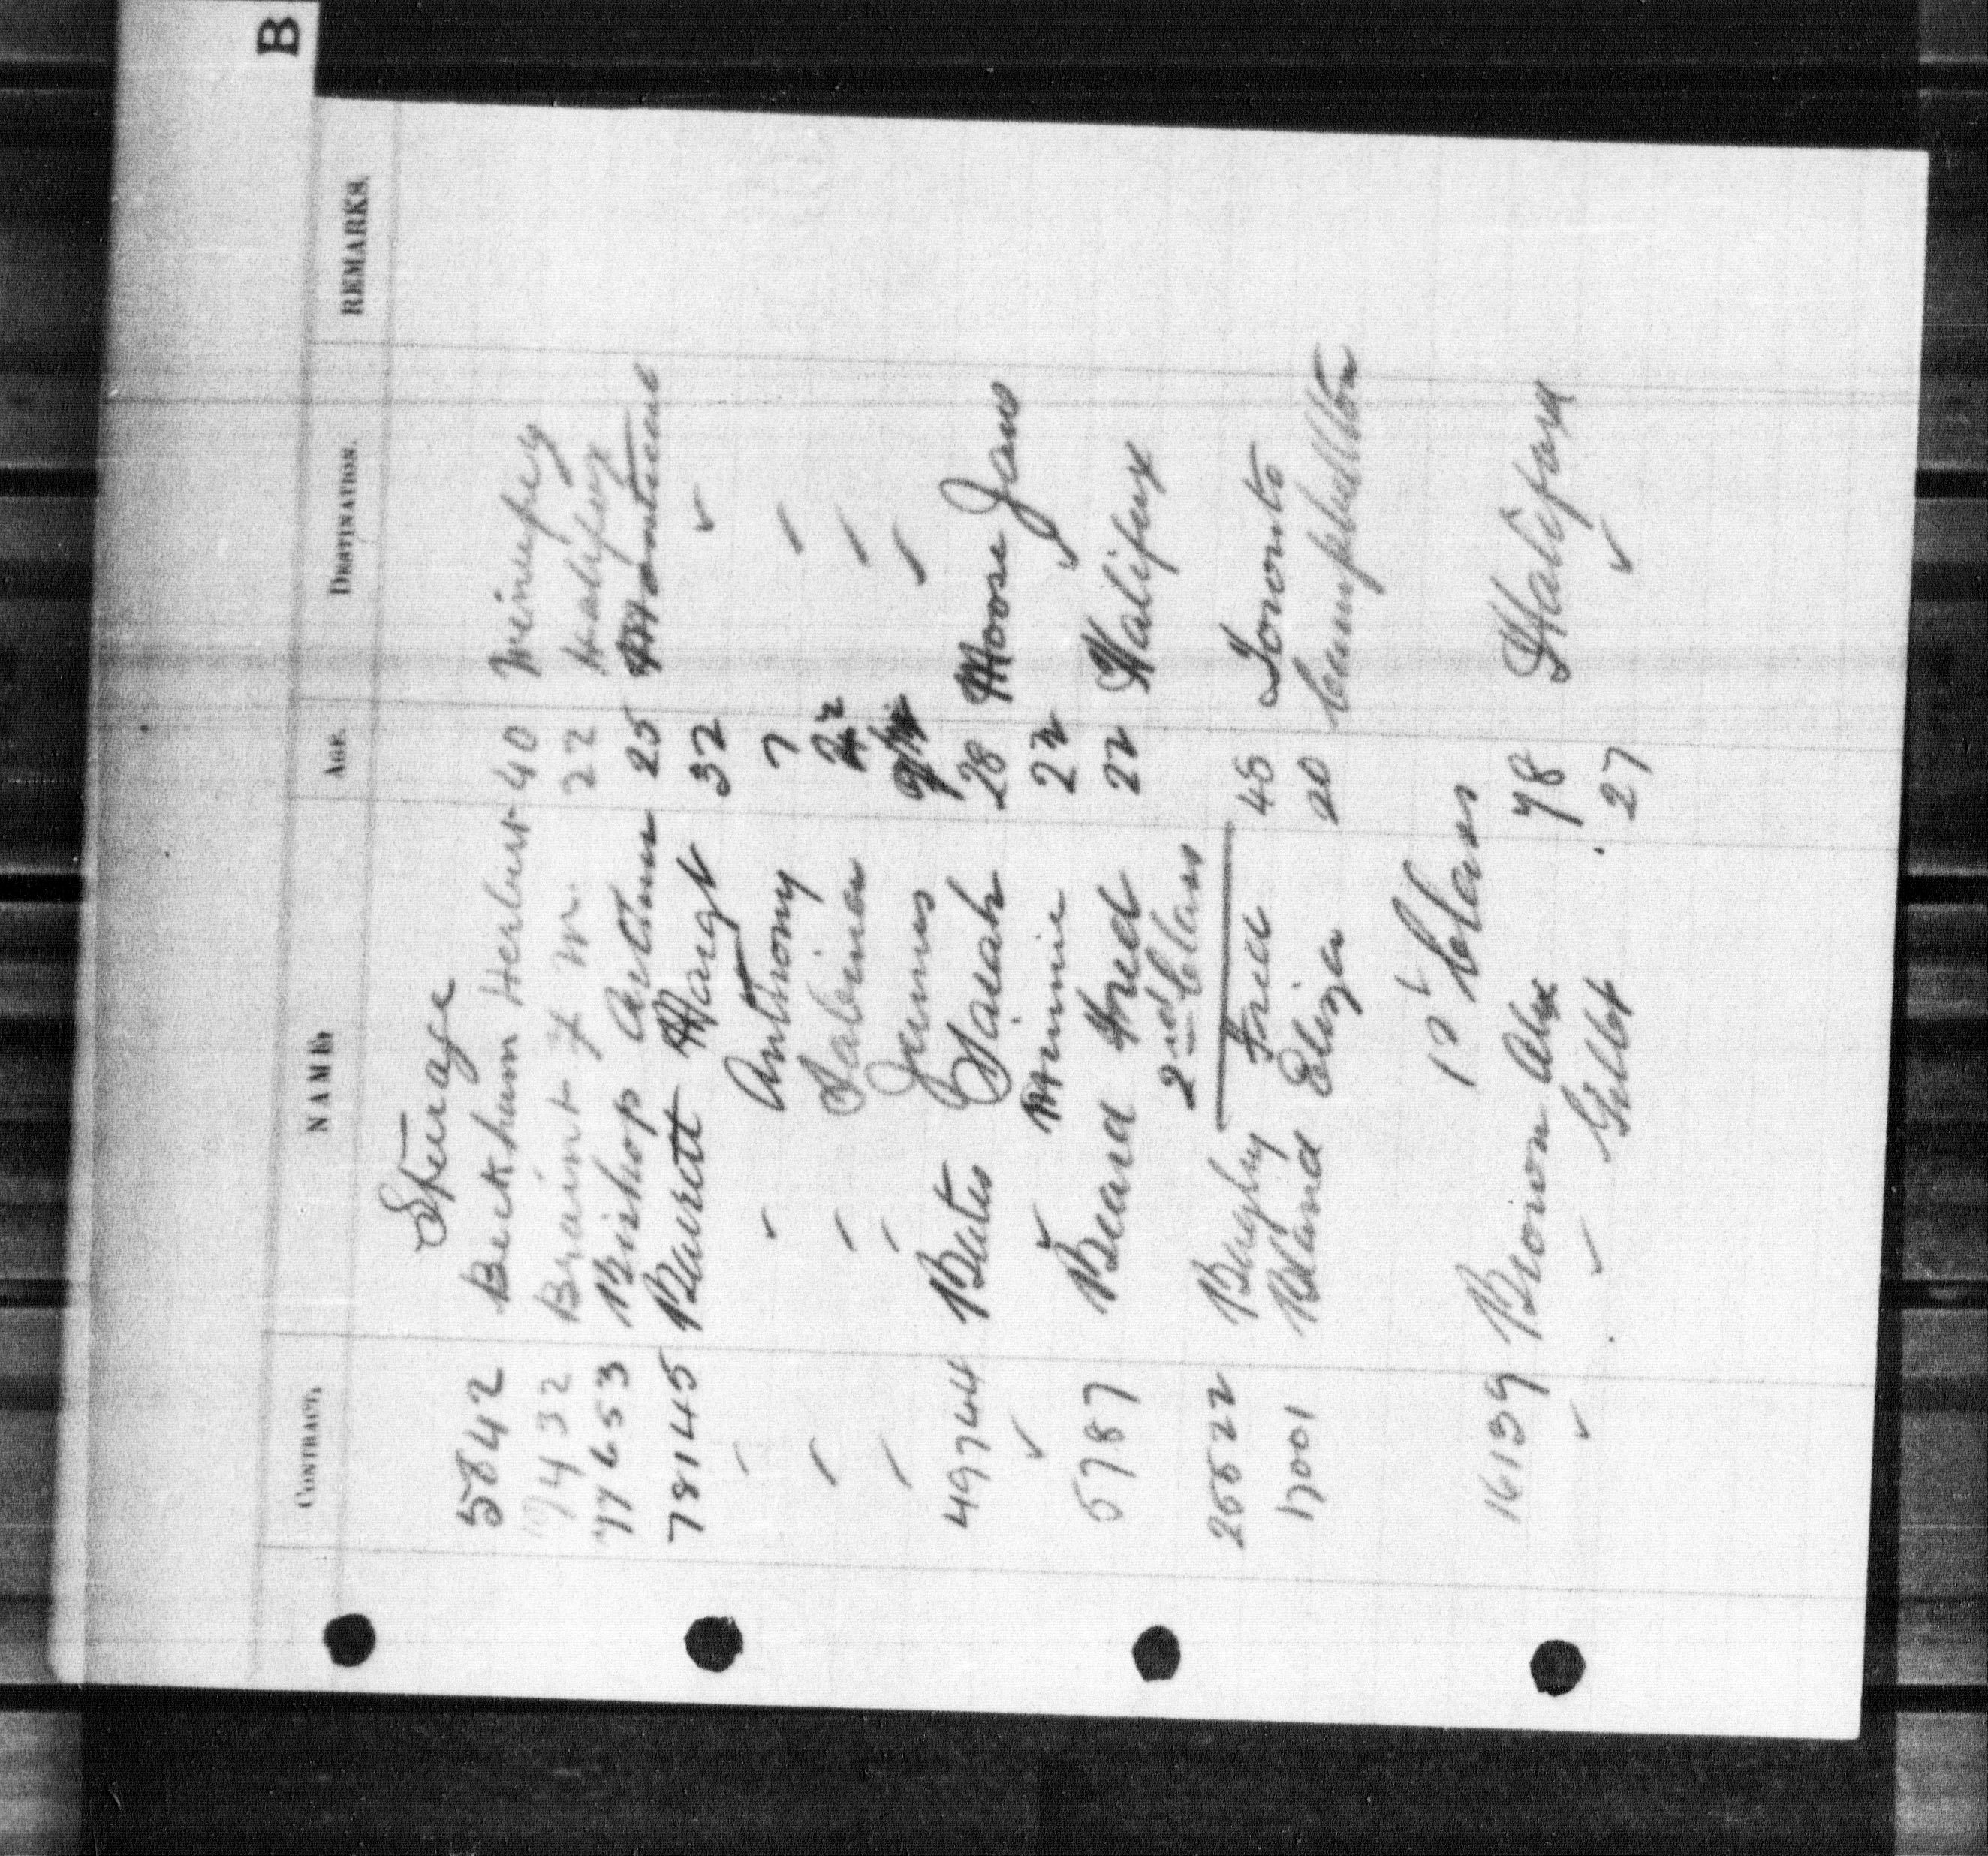 B
CONTRACT. NAME. AGE. DESTINATION. REMARKS.
Steerage
5842 Beckham Herbert 40 Winnipeg
7432 Braint F M. 22 Halifax
77653 Bishop Arthur 25 Montreal
78145 Barrett Margt 32 ✓
✓ ✓ Anthony 7 ✓
✓ ✓ Sabina ✓
✓ ✓ James ✓
49744 Bates Sarah 28 Moose Jaw
✓ ✓ Minnie 22 ✓
5787 Beard Fred 22 Halifax
2nd Class
26622 Bagley Fred 45 Toronto
17001 Bland Eliza 20 Campbellton
1st Class
16139 Brown Alex 48 Halifax
✓ ✓ Gilbt 27 ✓